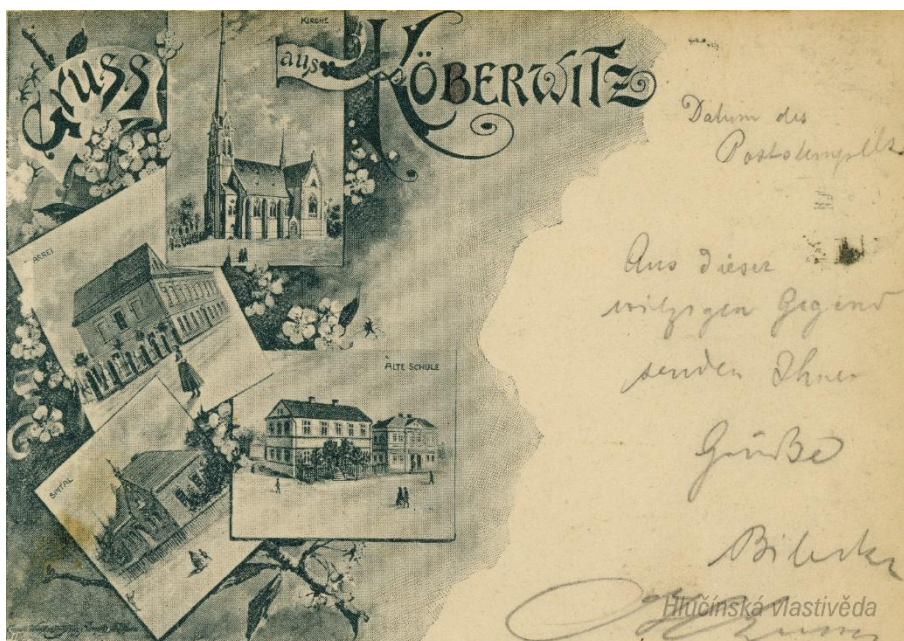 Gruss
aus
Köberwitz
KIRCHE
ARREI
ALTE SCHULE
SPITAL
Datum des
Poststempels
Aus dieser
witzigen Gegend
senden Ihnen
Grüße
Hlučínská vlastivěda